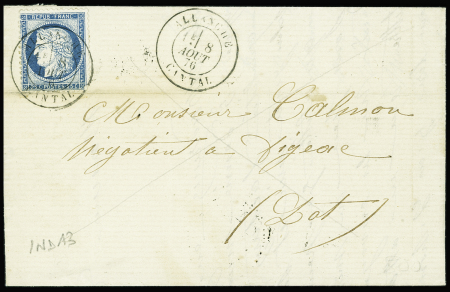 REPUB. FRANC.
25 C. POSTES 25 C.
CANTAL
ALLANCHE
8
AOUT
76
CANTAL
Monsieur Calmon
Négotient a Figeac
(Lot)
INDAB